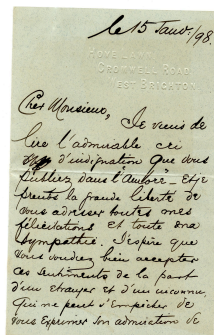 le 15 Janv./98.
HOVE
CROMWELL ROAD
WEST BRIGHTON
Cher Monsieur,
Je viens de
lire l'admirable cri
d'indignation que vous
publiez dans l'Aurore - Et je
prends la grande liberté de
vous adresser toutes mes
félicitations et toute ma
sympathie. J'espère que
vous voudrez bien accepter
ces sentiments de la part
d'un étranger et d'un inconnu,
qui ne peut s'empêcher de
vous exprimer son admiration de